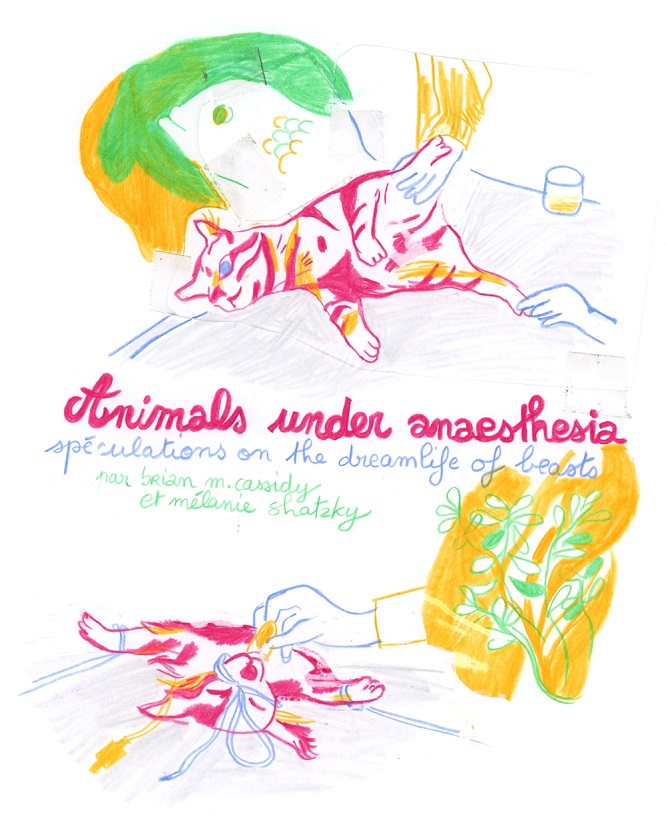 Animals under anaesthesia
spéculations on the dreamlife of beasts
par brian m. cassidy
et mélanie shatzky